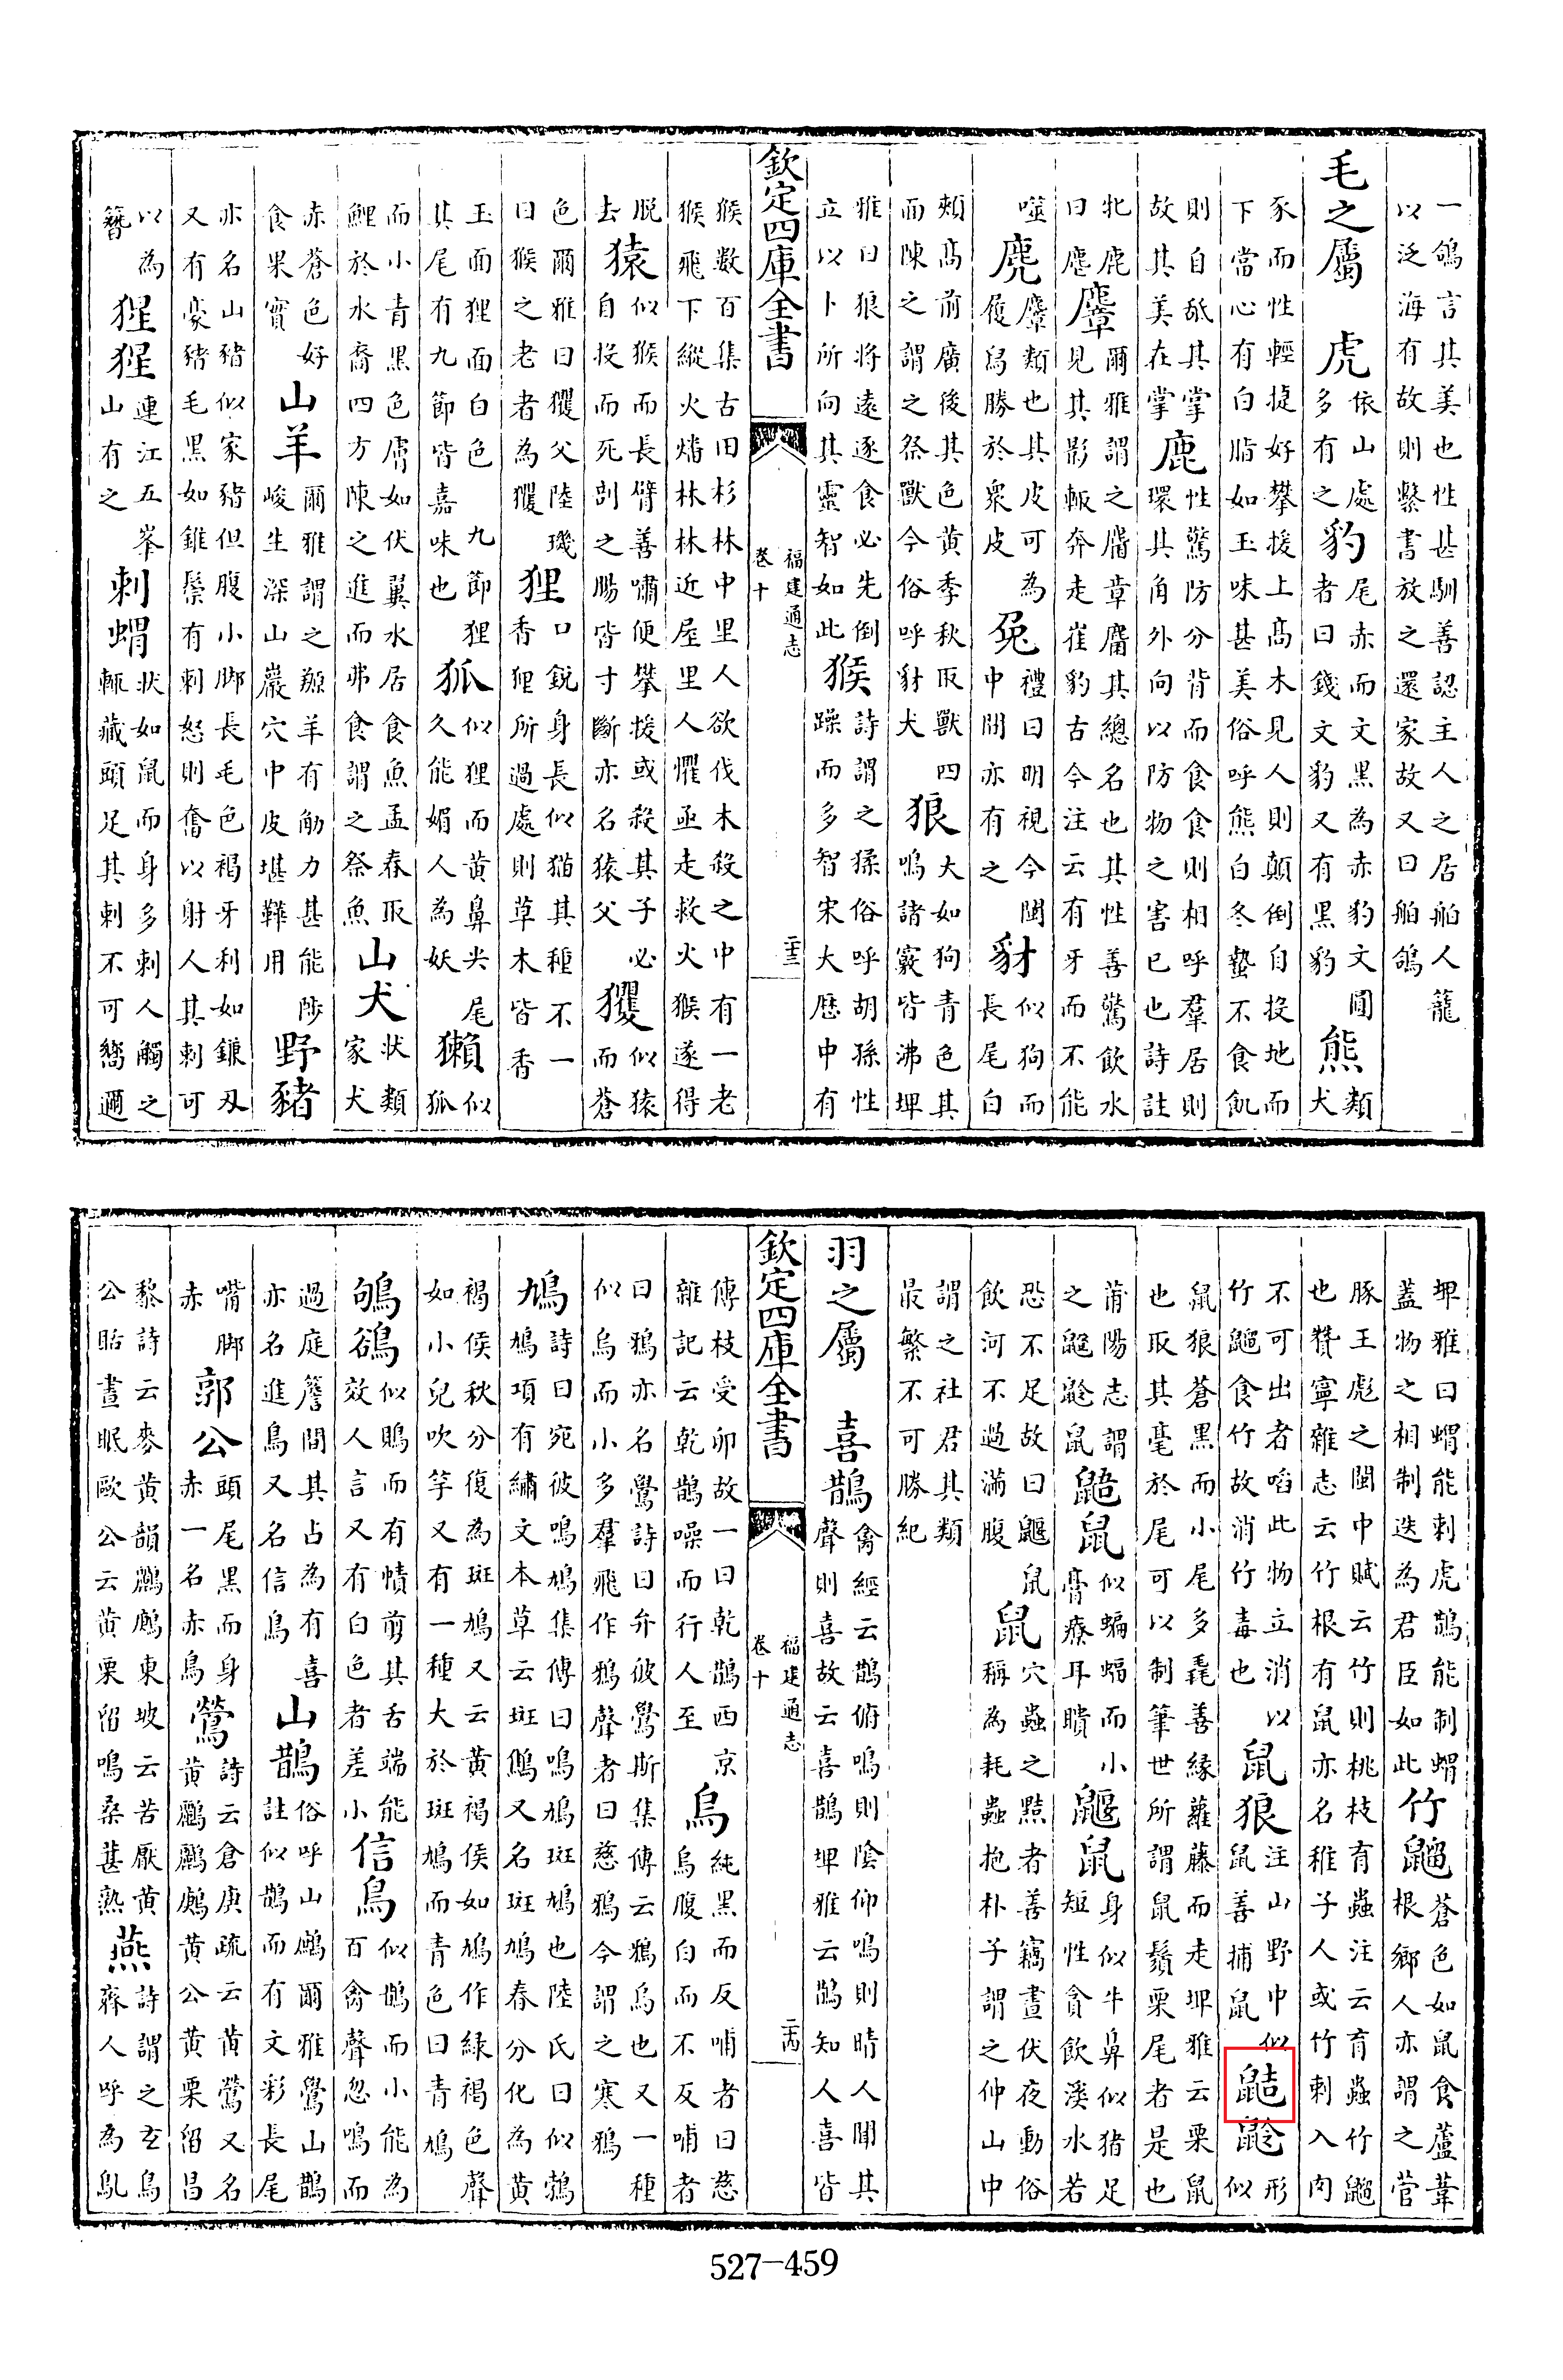 一鴿言其美也性甚馴善認主人之居舶人籠
以泛海有故則繫書放之還家故又曰舶鴿
毛之屬　虎依山處多有之豹尾赤而文黑為赤豹文圓者曰錢文豹又有黑豹熊類犬
豕而性輕捷好攀援上髙木見人則顛倒自投地而
下當心有白脂如玉味甚美俗呼熊白冬蟄不食飢
則自舐其掌故其美在掌鹿性驚防分背而食食則相呼羣居則環其角外向以防物之害已也詩註
牝鹿曰麀麞爾雅謂之麕章麕其總名也其性善驚飲水見其影輒奔走崔豹古今注云有牙而不能
噬麂麞類也其皮可為履舄勝於衆皮兔禮曰明視今閩中間亦有之豺似狗而長尾白
頰髙前廣後其色黄季秋取獸四而陳之謂之祭獸今俗呼豺犬狼大如狗青色其鳴諸竅皆沸埤
雅曰狼將逺逐食必先倒立以卜所向其靈智如此猴詩謂之猱俗呼胡孫性躁而多智宋大厯中有
欽定四庫全書
福建通志
卷十
二十三
猴數百集古田杉林中里人欲伐木殺之中有一老
猴飛下縱火燔林林近屋里人懼亟走救火猴遂得
脱去猿似猴而長臂善嘯便攀援或殺其子必自投而死剖之腸皆寸斷亦名猿父玃似猿而蒼
色爾雅曰玃父陸璣曰猴之老者為玃狸口鋭身長似猫其種不一香狸所過處則草木皆香
玉面狸面白色九節狸其尾有九節皆嘉味也狐似狸而黄鼻尖尾久能媚人為妖獺似狐
而小青黑色膚如伏翼水居食魚孟春取鯉於水裔四方陳之進而弗食謂之祭魚山犬状類家犬
赤蒼色好食果實山羊爾雅謂之羱羊有角力甚能陟峻生深山巖穴中皮堪鞾用野豬
亦名山豬似家豬但腹小脚長毛色褐牙利如鐮刄
又有豪豬毛黑如錐鬃有刺怒則奮以射人其刺可
以為簪猩猩連江五峯山有之刺蝟状如鼠而身多刺人觸之輒藏頭足其刺不可嚮邇
埤雅曰蝟能刺虎鵲能制蝟蓋物之相制迭為君臣如此竹鼺蒼色如鼠食蘆葦根鄉人亦謂之菅
豚王彪之閩中賦云竹則桃枝有蟲注云育蟲竹鼺
也贊寧雜志云竹根有鼠亦名稚子人或竹刺入肉
不可出者啗此物立消以竹鼺食竹故消竹毒也鼠狼注山野中似鼠善捕鼠䶃形似
鼠狼蒼黑而小尾多毳善緣蘿藤而走埤雅云栗鼠
也取其毫於尾可以制筆世所謂鼠鬚栗尾者是也
莆陽志謂之鼺䶃鼠鼯鼠似蝙蝠而小膏療耳聵鼴鼠身似牛鼻似猪足短性貪飲溪水若
恐不足故曰鼴鼠飲河不過滿腹鼠穴蟲之黠者善竊晝伏夜動俗稱為耗蟲抱朴子謂之仲山中
謂之社君其類最繁不可勝紀
羽之屬　喜鵲禽經云鵲俯鳴則陰仰鳴則晴人聞其聲則喜故云喜鵲埤雅云鵲知人喜皆
欽定四庫全書
福建通志
卷十
二十四
傅枝受卵故一曰乾鵲西京雜記云乾鵲噪而行人至烏純黑而反哺者曰慈烏腹白而不反哺者
曰鴉亦名鸒詩曰弁彼鸒斯集傳云鴉烏也又一種
似烏而小多羣飛作鴉聲者曰慈鴉今謂之寒鴉
鳩詩曰宛彼鳴鳩集傳曰鳴鳩斑鳩也陸氏曰似鶉鳩項有繡文本草云斑鷦又名斑鳩春分化為黄
褐侯秋分復為斑鳩又云黄褐侯如鳩作緑褐色聲
如小兒吹竽又有一種大於斑鳩而青色曰青鳩
鴝鵒似鵙而有幘剪其舌端能效人言又有白色者差小信鳥似鵲而小能為百禽聲忽鳴而
過庭簷間其占為有喜亦名進鳥又名信鳥山鵲俗呼山鷓爾雅鸒山鵲註似鵲而有文彩長尾
嘴脚赤郭公頭尾黑而身赤一名赤鳥鶯詩云倉庚疏云黄鶯又名黄鸝鸝鷅黄公黄栗留昌
黎詩云麥黄韻鸝鷓東坡云苦厭黄公聒晝眠歐公云黄栗留鳴桑葚熟燕詩謂之玄鳥齊人呼為鳦
527-459